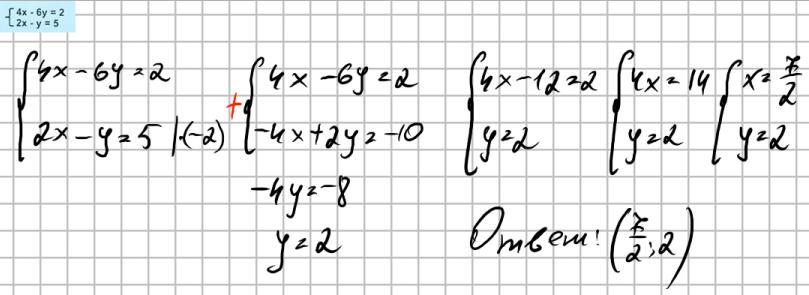 {4x - 6y = 2
{2x - y = 5
{4x - 6y = 2
{2x - y = 5 | · (-2)
+ {4x - 6y = 2
{-4x + 2y = -10
-4y = -8
y = 2
{4x - 12 = 2
{y = 2
{4x = 14
{y = 2
{x = 7/2
{y = 2
Ответ: (7/2; 2)